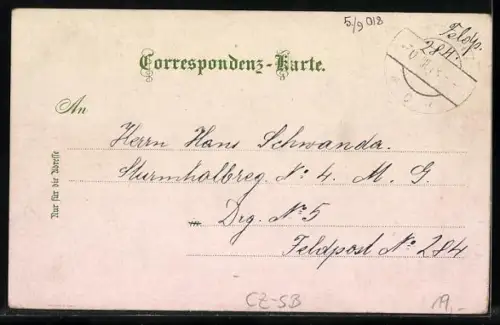 5/9 018
Feldp.
284.
Correspondenz-Karte.
An
Herrn Hans Schwanda.
Sturmhalbreg. No 4. M. G.
Drg. No 5
Feldpost No 284
Nur für die Adresse
CZ-SB
19,-